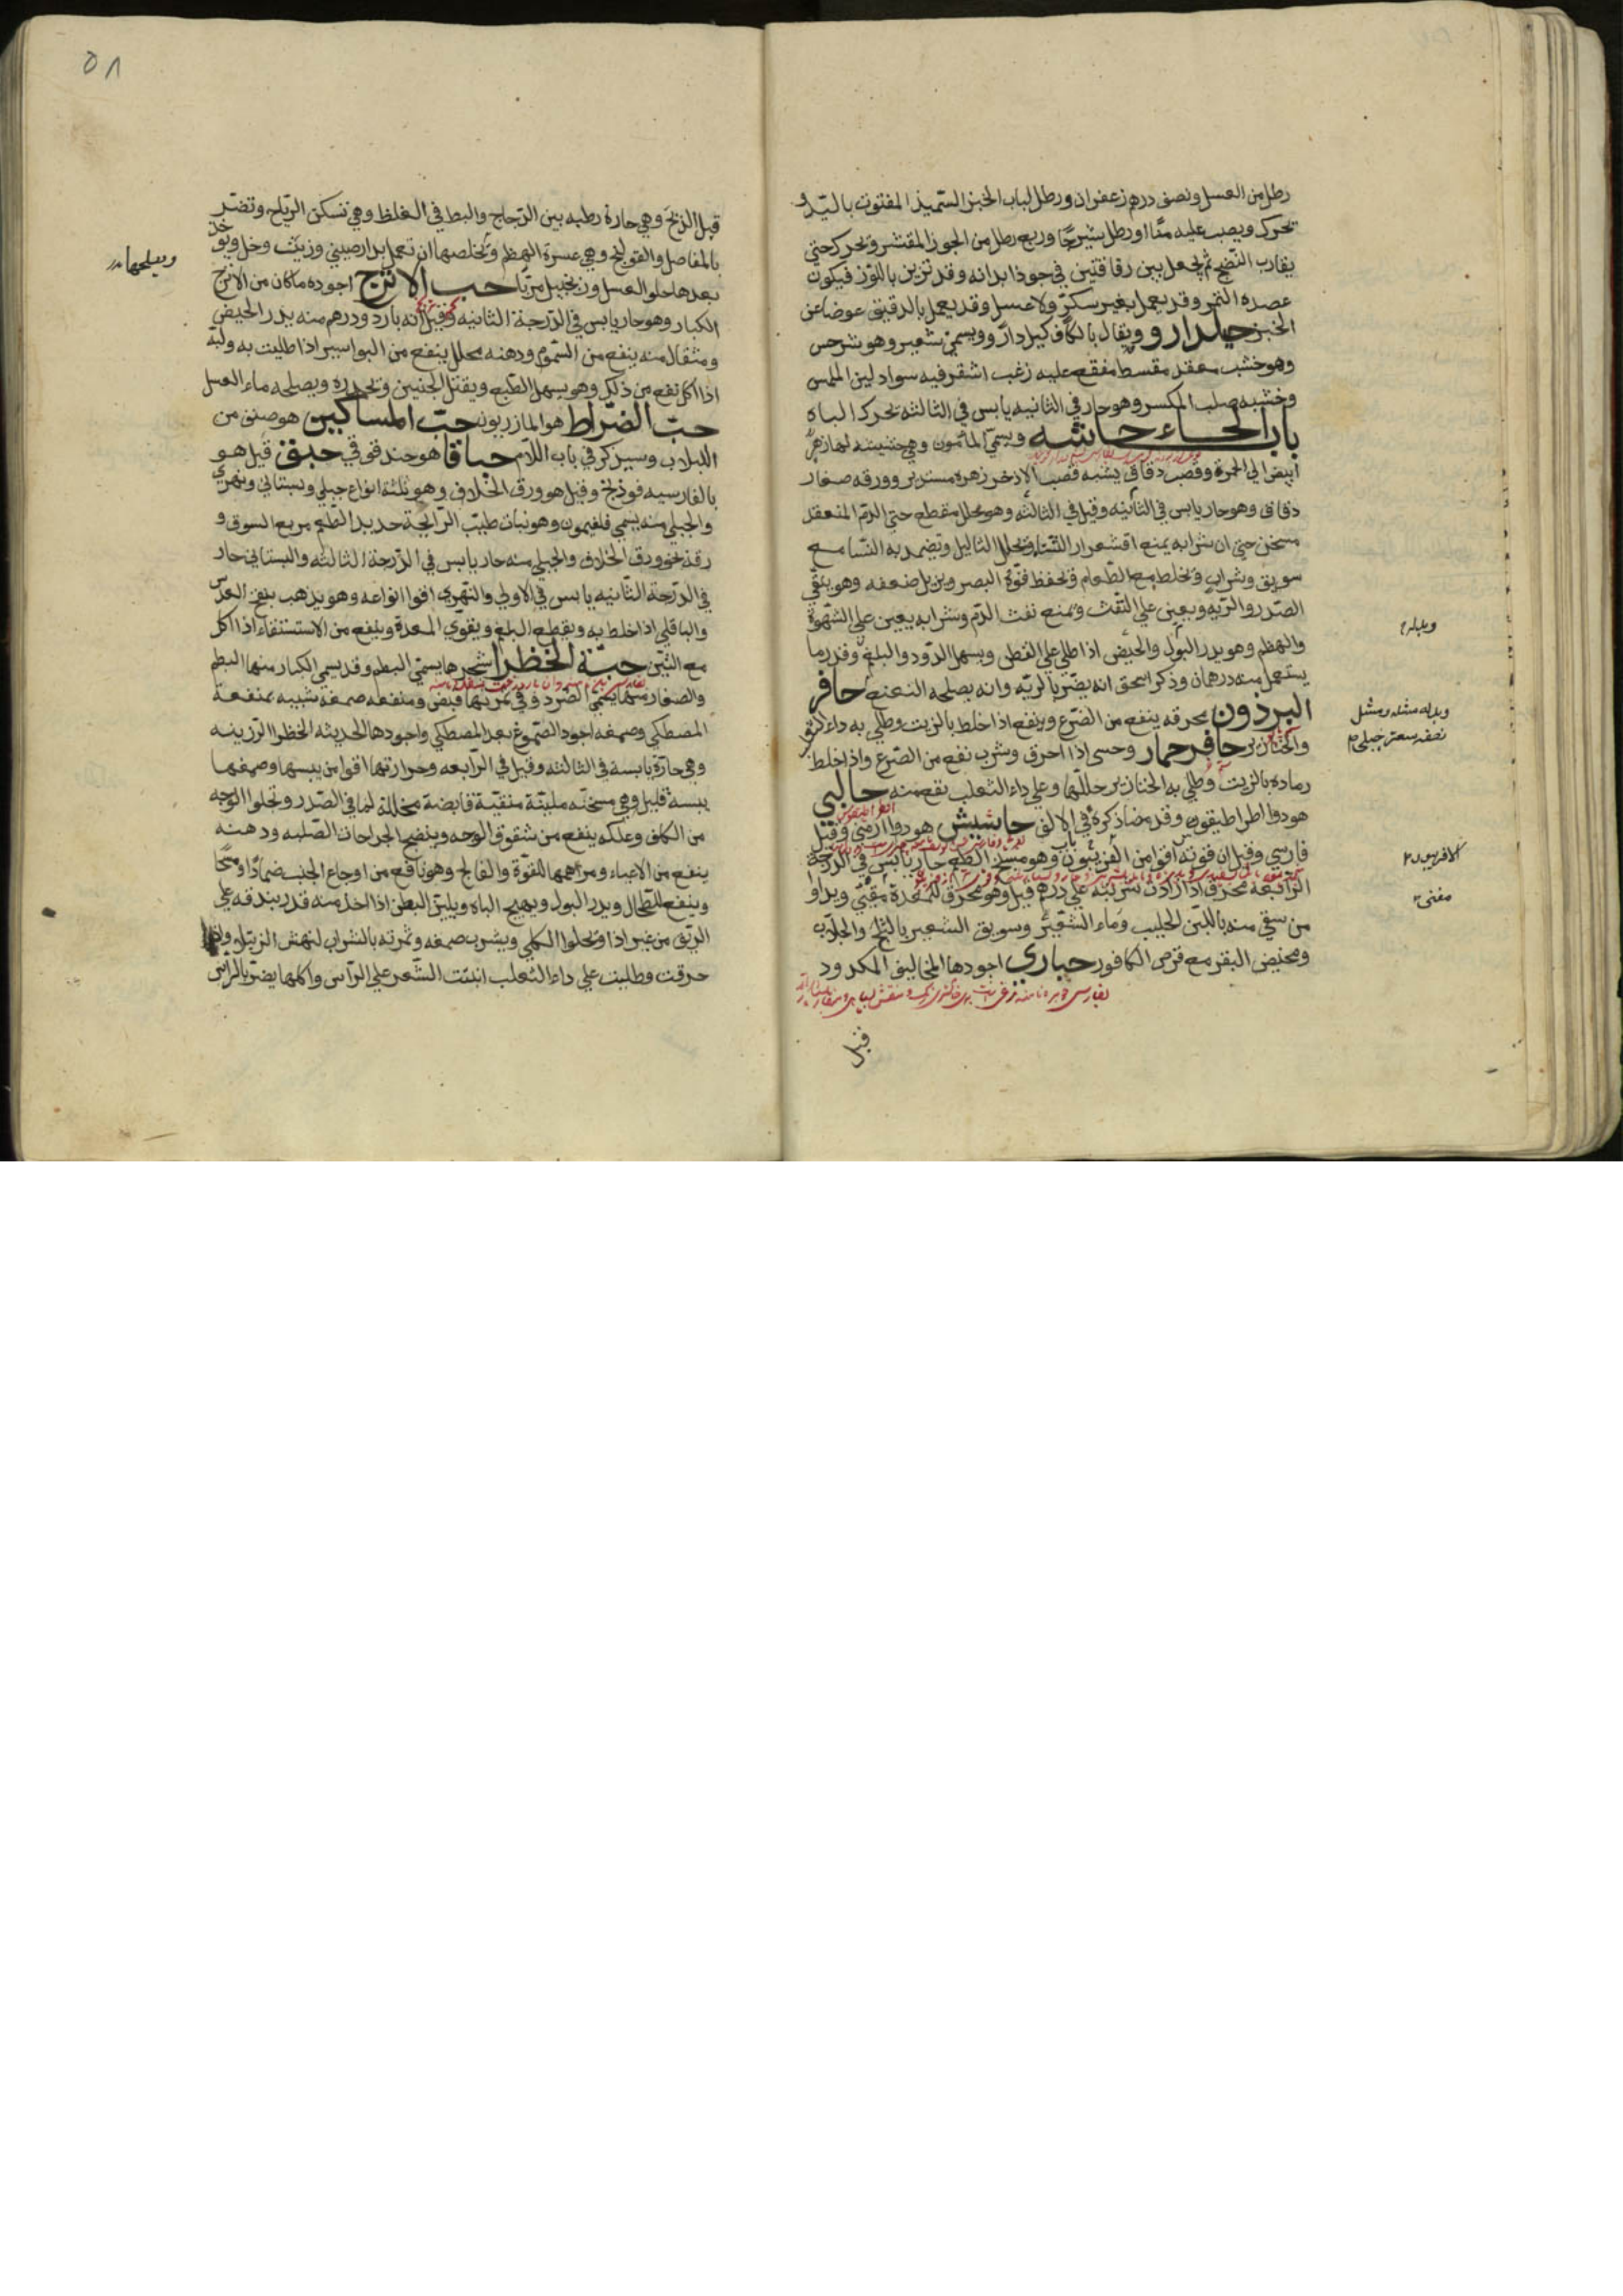 رطل من العسل ونصف درهم زعفران ورطل لباب الخبز السميذ المفتوت باليد و
تحرك ويصب عليه منًّا او رطل شيرجًا وربع رطل من الجوز المقشر وتحرك حتي
يقارب النضج ثم يجعل بين رقاقتين في جوذابدانه وقد تزين باللوز فيكون
عصده التمر وقد يعمل بغير سكر ولا عسل وقد يعمل بالدقيق عوضا عن
الخبز جيلدارو ويقال بالكاف كيلدارو ويسمي شعير وهو شرحس
وهو خشب معقد مقسط مفقع عليه زغب اشقر فيه سواد لين الملمس
وخشبه صلب المكسر وهو حار في الثانيه يابس في الثالثه يحرك الباه
باب الحاء حاشه ويسمّي المامون وهي حشيشه لها زهر
ابيض الي الحمرة وقضب دقاق يشبه قضب الاذخر زهره مستدير وورقه صغار
دقاق وهو حار يابس في الثانيه وقيل في الثالثه وهو محلل مقطع حتي الدم المنعقد
مسخن حتي ان شرابه يمنع اقشعرار الشتاء ويحلل الثاليل ويضمد به النسا مع
سويق وشراب ويخلط مع الطعام فيحفظ قوّة البصر ويزيل ضعفه وهو ينقّي
الصدر والريه ويعين علي النفث ويمنع نفث الدم وشرابه يعين علي الشهوة
والهضم وهو يدر البول والحيض اذا طلي علي القطن ويسهل الدود والبلغم وقدر ما
يستعمل منه درهمان وذكر اسحق انه يضر بالريه وانه يصلحه النعنع حافر
البرذون محرقه ينفع من الصرع وينفع اذا خلط بالزيت وطلي به داء الثعلب
والخنازير حافر حمار وحسي اذا احرق وشرب نفع من الصرع واذا خلط
رماده بالزيت وطلي به الخنازير حللها وعلي داء الثعلب نفع منه حالبي
هو دوا اطراطيقون وقد مضا ذكره في باب الالف حاشيش هو دوا ارمني وقيل
فارسي وقيل ان قوته اقوا من الفربيون وهو مسخ الطعم حار يابس في الدرجة
الرابعة محرق اذا زادت شربته علي درهم قتل وهو محرق للمعدة مقيّي ويداوا
من سقي منه باللبن الحليب وماء الشعير وسويق الشعير بالثلج والجلاب
ومخيض البقر مع قرص الكافور حباري اجودها المخاليف المكدود
قيل
وبدله
وبدله مثله ومثل
نصفه سعتر جبلي
مغني
٥٨
قبل الذبح وهي حارة رطبه بين الدجاج والبط في الغلظ وهي تسكن الرياح وتضر
بالمفاصل والقولنج وهي عسرة الهضم ويخلصها ان تعمل بدارصيني وزيت وخل ويوخذ
بعدها حلو العسل وزنجبيل مربّا حب الاترج اجوده ما كان من الاترج
الكبار وهو حار يابس في الدرجة الثانيه وقيل انه بارد ودرهم منه يدر الحيض
ومثقال منه ينفع من السموم ودهنه محلل ينفع من البواسير اذا طليت به ولبه
اذا اكل نفع من ذلك وهو يسهل الطبع ويقتل الجنين ويحدره ويصلحه ماء العسل
حبّ الضراط هو المازريون حبّ المساكين هو صنف من
اللبلاب وسيذكر في باب اللام حباقا هو حندقوقي حبق قيل هو
بالفارسيه فوذنج وقيل هو ورق الخلاف وهو ثلثة انواع جبلي وبستاني ونهري
والجبلي منه يسمي فلغيمون وهو نبات طيب الرايحة حديد الطعم مربع السوق و
رقه نحو ورق الخلاف والجبلي منه حار يابس في الدرجة الثالثه والبستاني حار
في الدرجة الثانيه يابس في الاولي والنهري اقوا انواعه وهو يذهب بنفخ العدس
والباقلي اذا خلط به ويقطع البلغم ويقوي المعدة وينفع من الاستسقاء اذا اكل
مع التين حبّة الخظرا شجرها يسمي البطم وقد يسمي الكبار منها البطم
والصغار منها يسمي الضرو وفي ثمرتها قبض ومنفعه صمغه شبيه بمنفعة
المصطكي وصمغه اجود الصموغ بعد المصطكي واجودها الحديثه الخظرا الرزينه
وهي حارّة يابسة في الثالثه وقيل في الرابعه وحرارتها اقوا من يبسها وصمغها
يبسه قليل وهي مسخنه ملينة منقية قابضة محللة لما في الصدر وتجلوا الوجه
من الكلف وعلكه ينفع من شقوق الوجه وينضج الجراحات الصلبه ودهنه
ينفع من الاعياء ومرهمها للقوة والفالج وهو نافع من اوجاع الجنب ضمادًا ومسحًا
وينفع للطحال ويدر البول ويهيج الباه ويلين البطن اذا اخذ منه قدر بندقه علي
الريق من غير اذا ويجلوا الكلي ويشرب صمغه وثمرته بالشراب لنهش الرتيلا واذا
حرقت وطليت علي داء الثعلب انبتت الشعر علي الرآس واكلها يضر بالرآس
ويصلحها